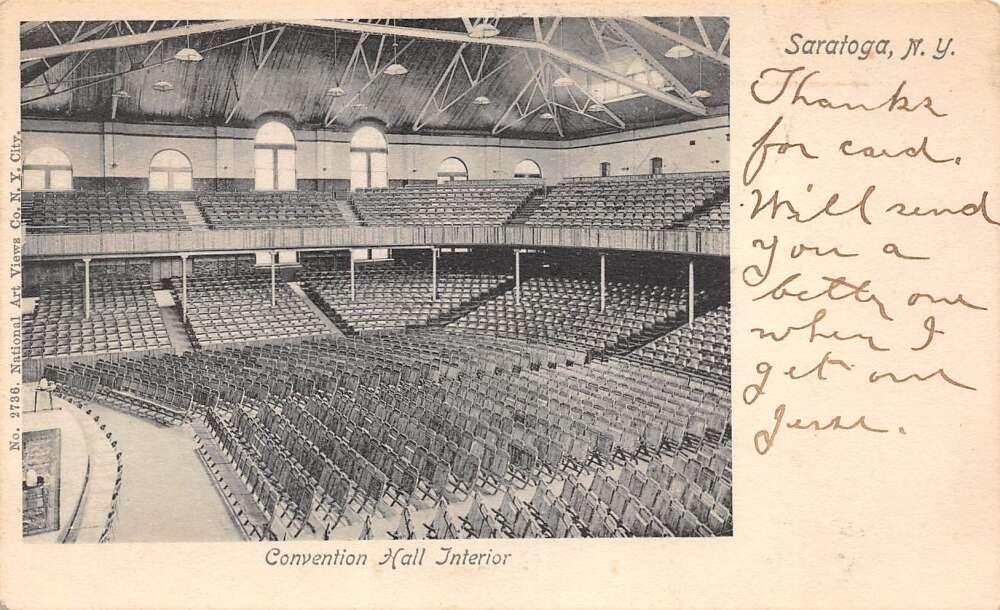 Saratoga, N. Y.
Thanks
for card.
Will send
you a
better one
when I
get one
Jesse.
Convention Hall Interior
No. 2736. National Art Views Co. N. Y. City.